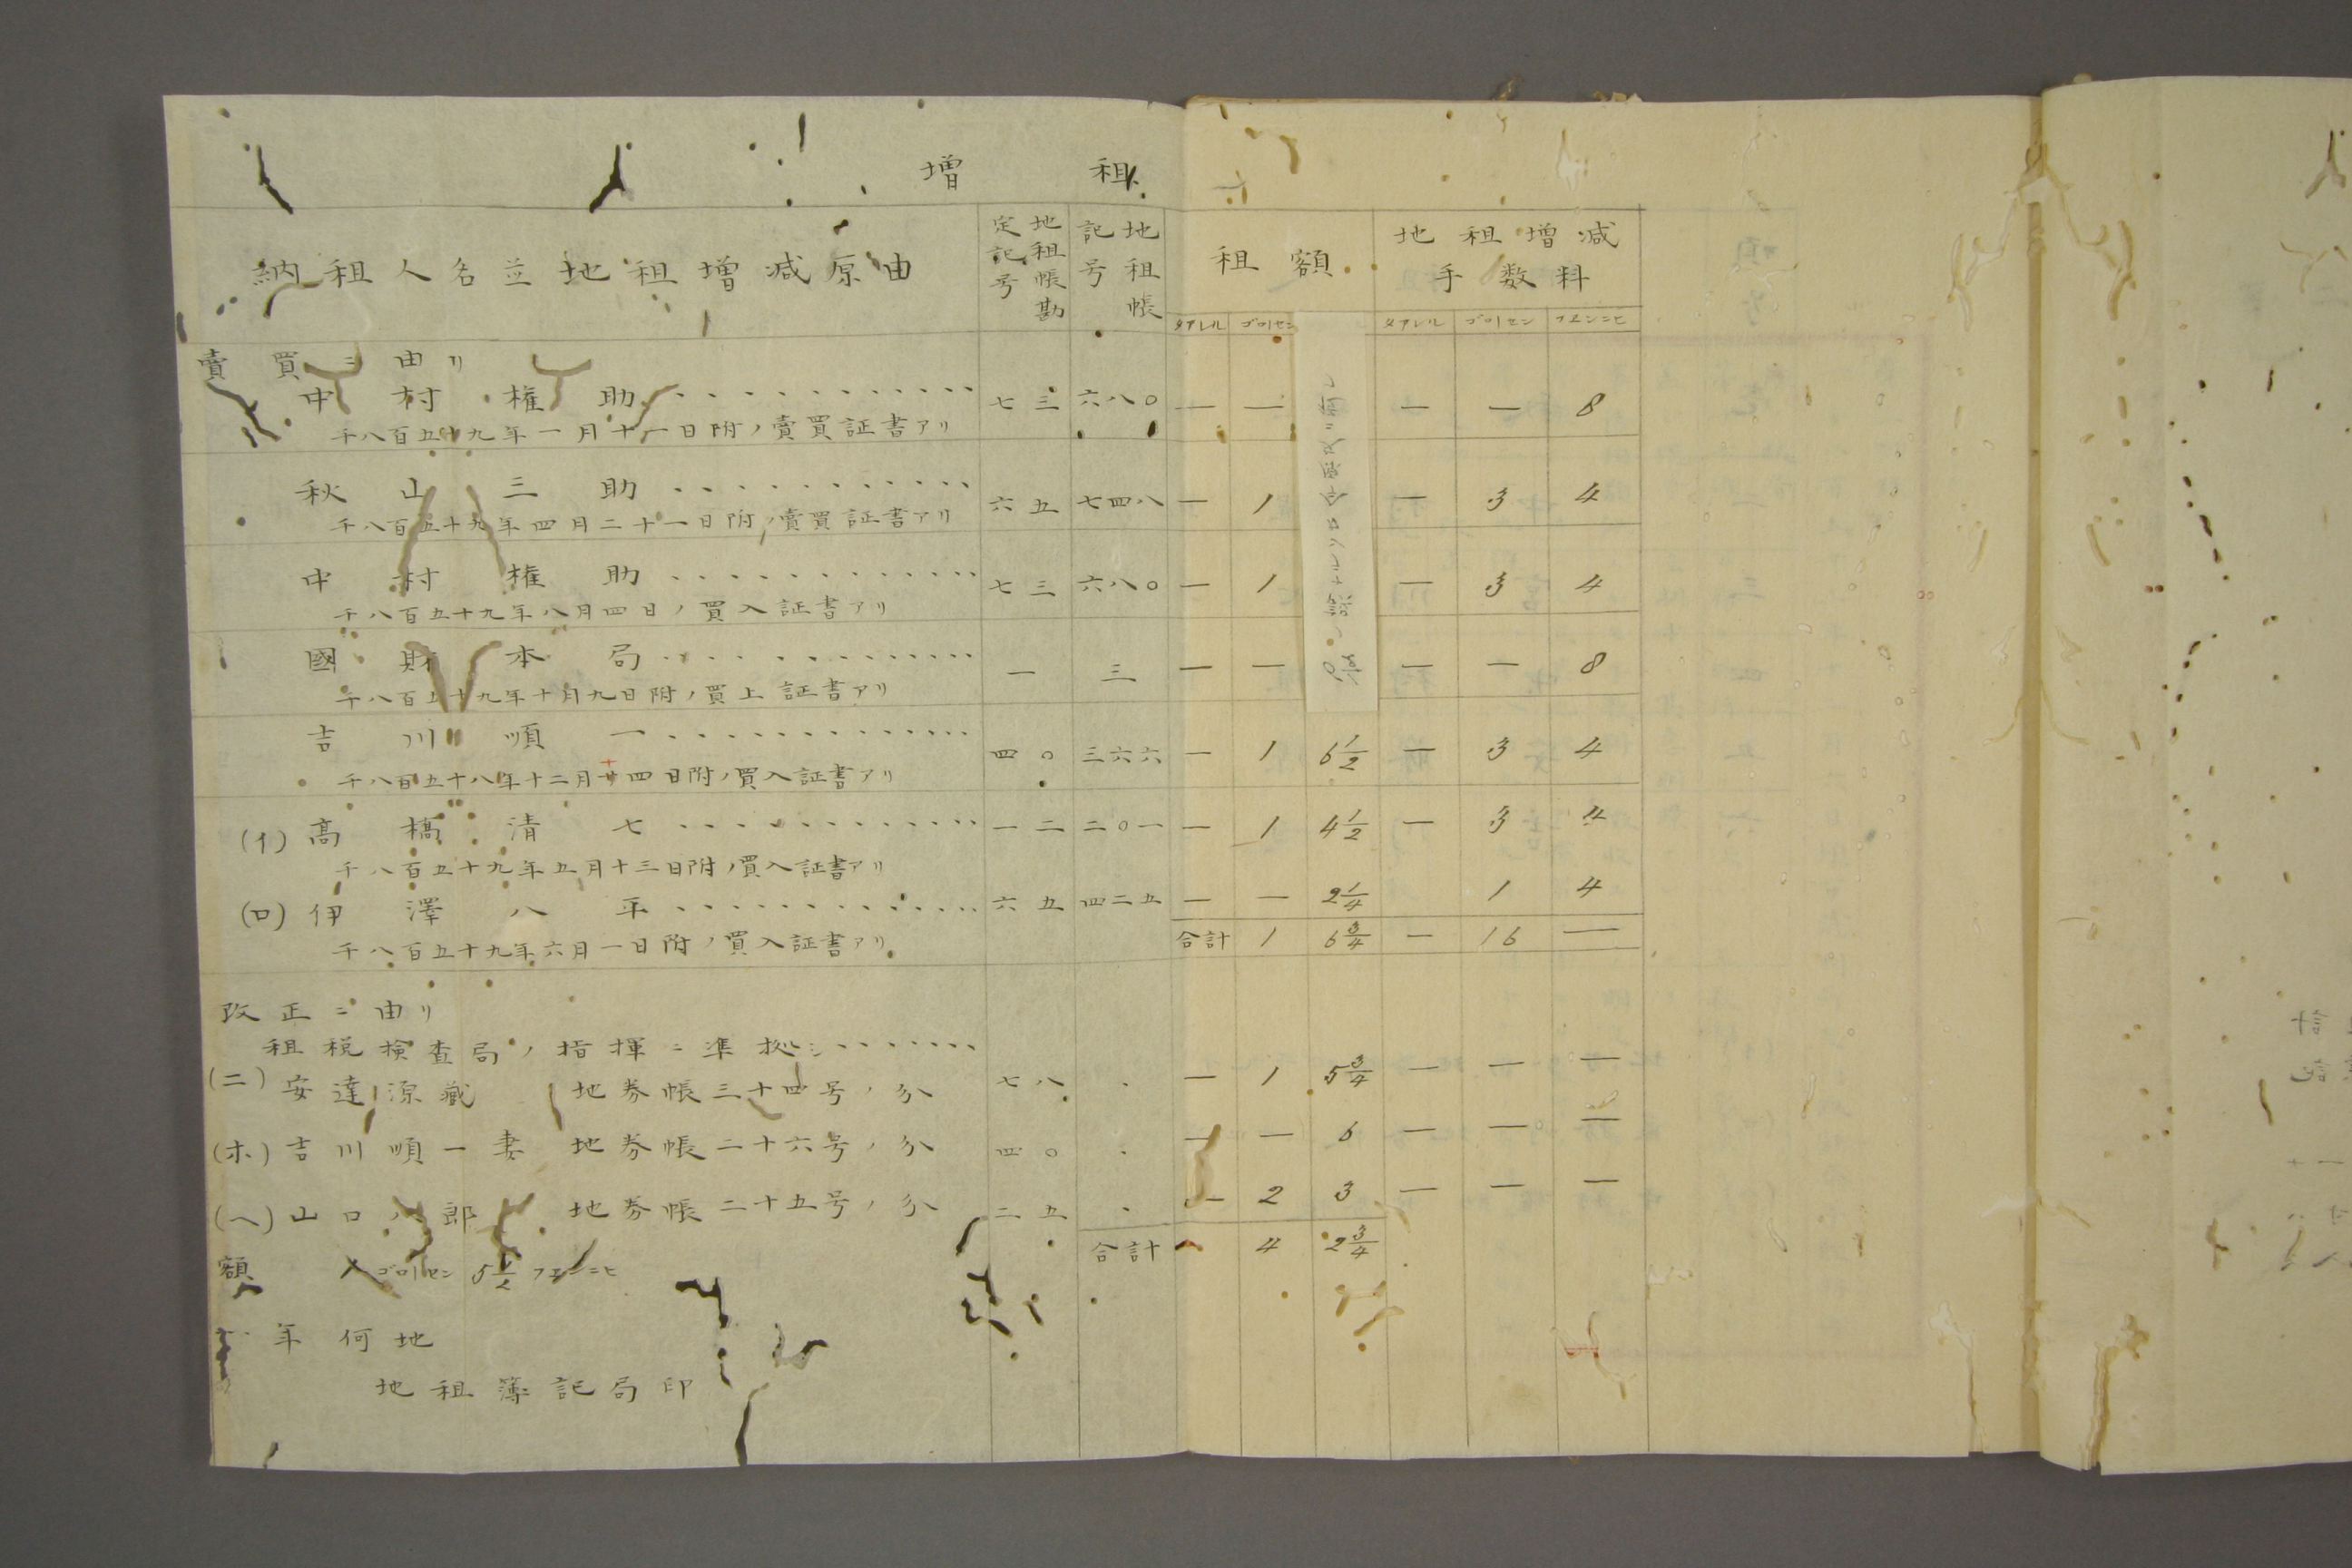 増 租
納租人名並地租増減原由 地租帳勘定記号 地租帳記号 租額 地租増減手数料
タアレル ゴロイセン タアレル ゴロイセン フエンニヒ
賣買ニ由リ
中村権助 七三 六八〇 — — — — 8
千八百五十九年一月十一日附ノ賣買証書アリ
秋山三助 六五 七四八 — 1 — 3 4
千八百五十九年四月二十一日附ノ賣買証書アリ
中村権助 七三 六八〇 — 1 — 3 4
千八百五十九年八月四日ノ買入証書アリ
國財本局 一 三 — — — — 8
千八百五十九年十月九日附ノ買上証書アリ
吉川順一 四〇 三六六 — 1 6 1/2 — 3 4
千八百五十八年十二月廿四日附ノ買入証書アリ
(イ) 高橋清七 一二 二〇一 — 1 4 1/2 — 3 4
千八百五十九年五月十三日附ノ買入証書アリ
(ロ) 伊澤八平 六五 四二五 — — 2 1/4 1 4
千八百五十九年六月一日附ノ買入証書アリ
合計 1 6 3/4 — 16 —
改正ニ由リ
租税検査局ノ指揮ニ準拠シ
(ニ) 安達源藏 地券帳三十四号ノ分 七八 — 1 5 3/4 — — —
(ホ) 吉川順一妻 地券帳二十六号ノ分 四〇 — — 6 — — —
(ヘ) 山口八郎 地券帳二十五号ノ分 二五 — 2 3 — — —
合計 4 2 3/4
額 ゴロイセン 5 1/2 フエンニヒ
年何地
地租簿記局印